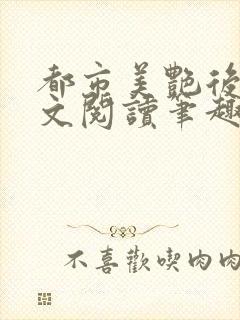 都市美艷後
文閱讀筆趣
不喜歡喫肉肉